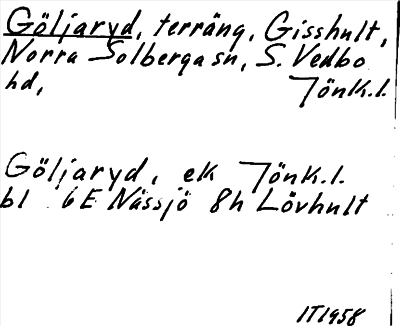 Göljaryd, terräng, Gisshult,
Norra Solberga sn, S. Vedbo
hd, Jönk.l.
Göljaryd, ek Jönk.l.
bl 6E Nässjö 8h Lövhult
IT1958